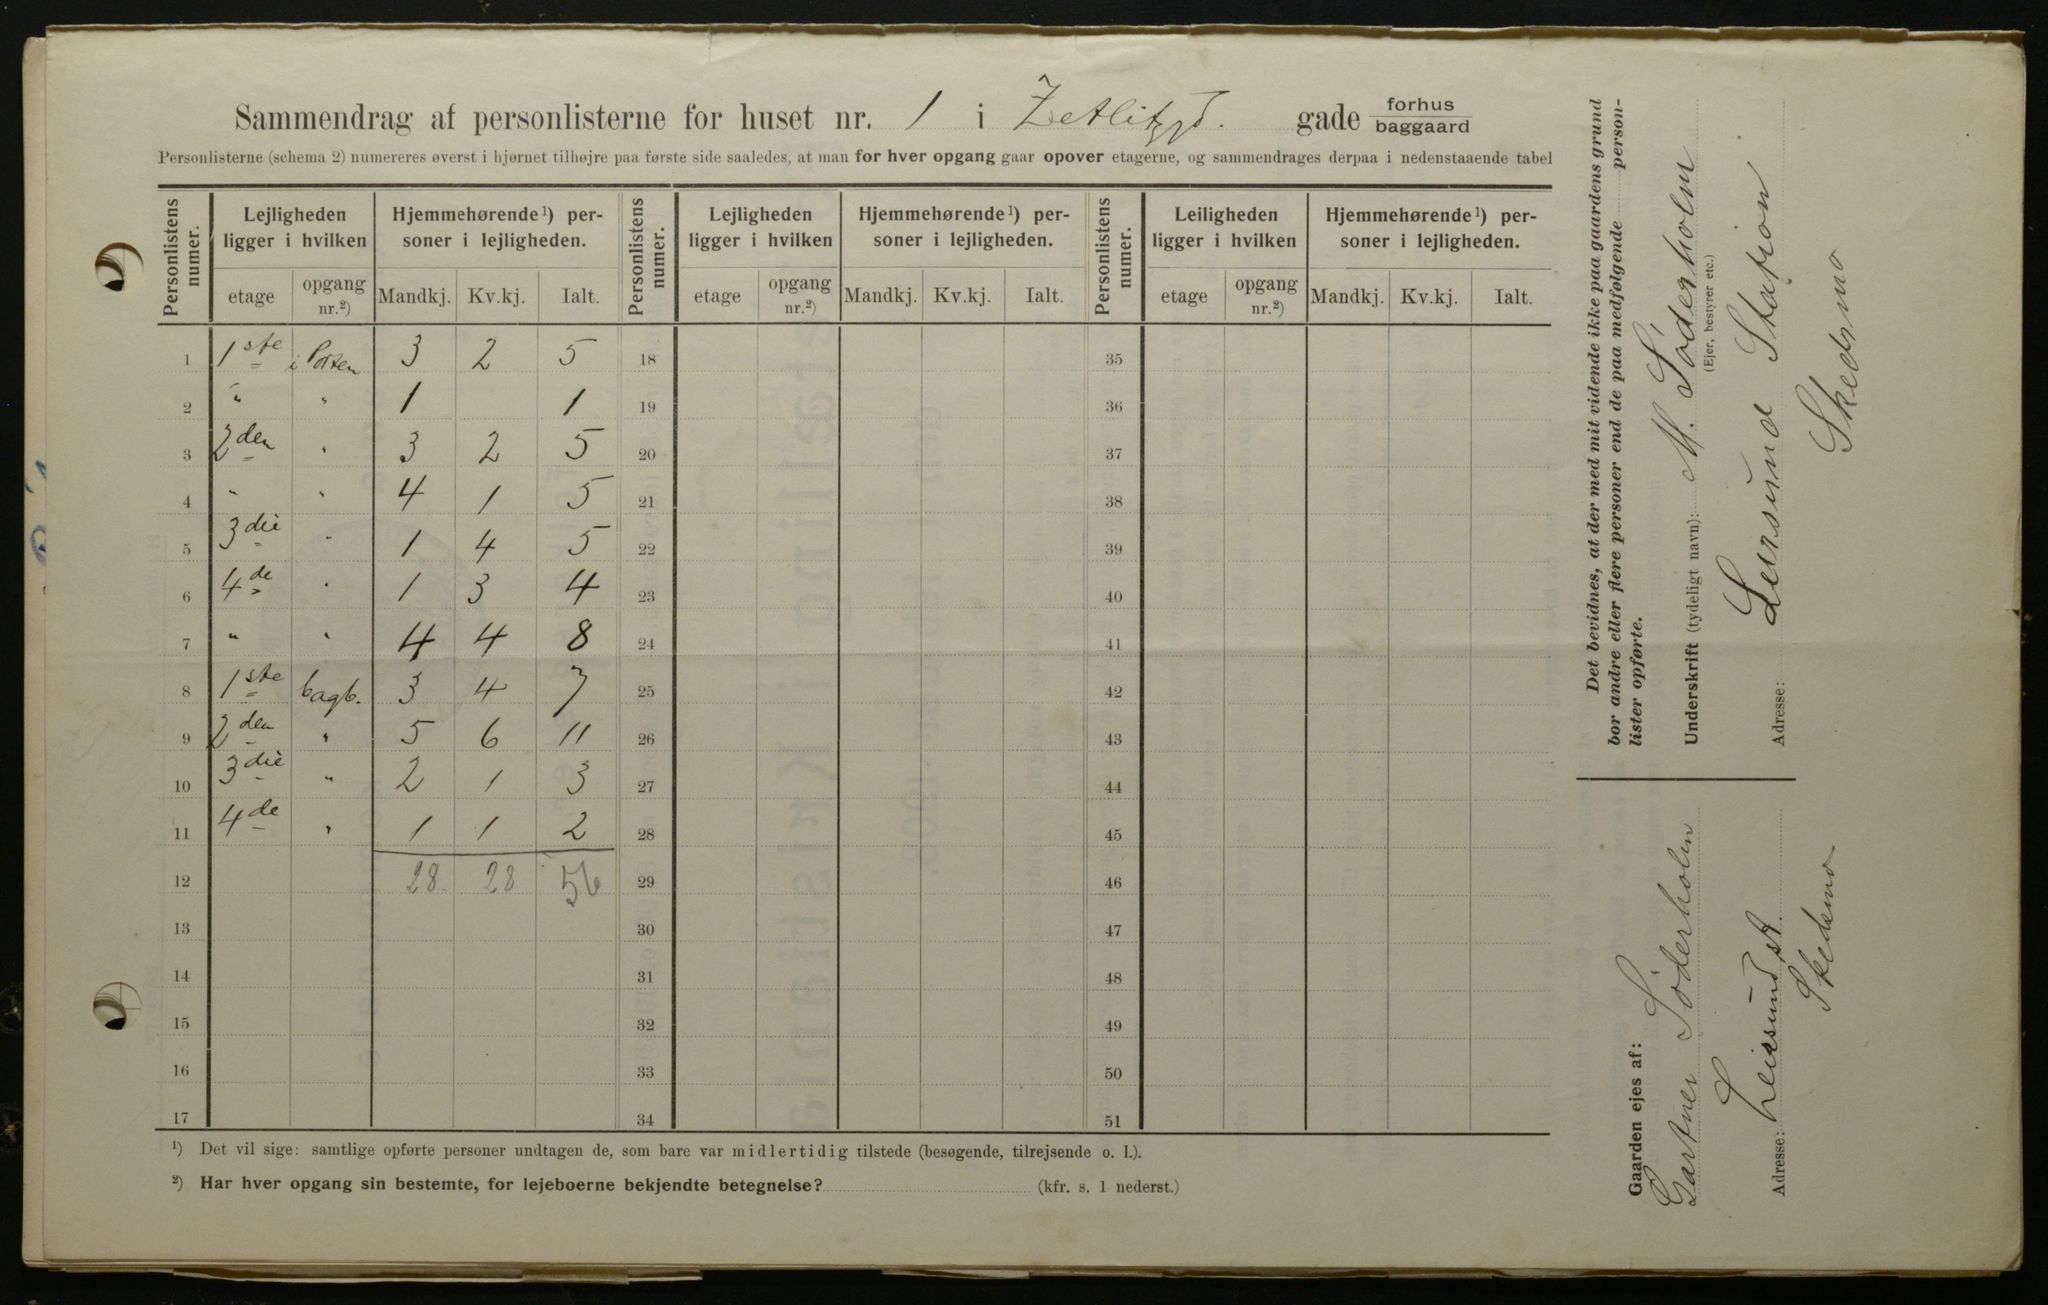 Sammendrag af personlisterne for huset nr. 1 i Zetlitzgd. gade forhus baggaard
Personlisterne (schema 2) numereres øverst i hjørnet tilhøjre paa første side saaledes, at man for hver opgang gaar opover etagerne, og sammendrages derpaa i nedenstaaende tabel
Personlistens numer. Lejligheden ligger i hvilken Hjemmehørende¹) personer i lejligheden. Personlistens numer. Lejligheden ligger i hvilken Hjemmehørende¹) personer i lejligheden. Personlistens numer. Leiligheden ligger i hvilken Hjemmehørende¹) personer i lejligheden.
etage opgang nr.²) Mandkj. Kv.kj. Ialt. etage opgang nr.²) Mandkj. Kv.kj. Ialt. etage opgang nr.²) Mandkj. Kv.kj. Ialt.
1 1ste i Porten 3 2 5 18 35
2 " " 1 1 19 36
3 2den " 3 2 5 20 37
4 " " 4 1 5 21 38
5 3die " 1 4 5 22 39
6 4de " 1 3 4 23 40
7 " " 4 4 8 24 41
8 1ste bagb. 3 4 7 25 42
9 2den " 5 6 11 26 43
10 3die " 2 1 3 27 44
11 4de " 1 1 2 28 45
12 28 28 56 29 46
13 30 47
14 31 48
15 32 49
16 33 50
17 34 51
¹) Det vil sige: samtlige opførte personer undtagen de, som bare var midlertidig tilstede (besøgende, tilrejsende o. l.).
²) Har hver opgang sin bestemte, for lejeboerne bekjendte betegnelse? (kfr. s. 1 nederst.)
Det bevidnes, at der med mit vidende ikke paa gaardens grund
bor andre eller flere personer end de paa medfølgende personlister opførte.
Underskrift (tydeligt navn): M. Söderholm
(Ejer, bestyrer etc.)
Adresse: Leirsund Station
Skedsmo
Gaarden ejes af:
Gartner Söderholm
Adresse: Leirsund st.
Skedsmo